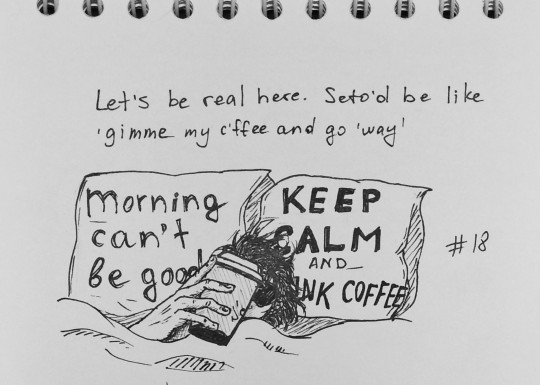 Let's be real here. Seto'd be like
'gimme my c'ffee and go 'way'
Morning
can't
be good
KEEP
CALM
AND
INK COFFEE
#18